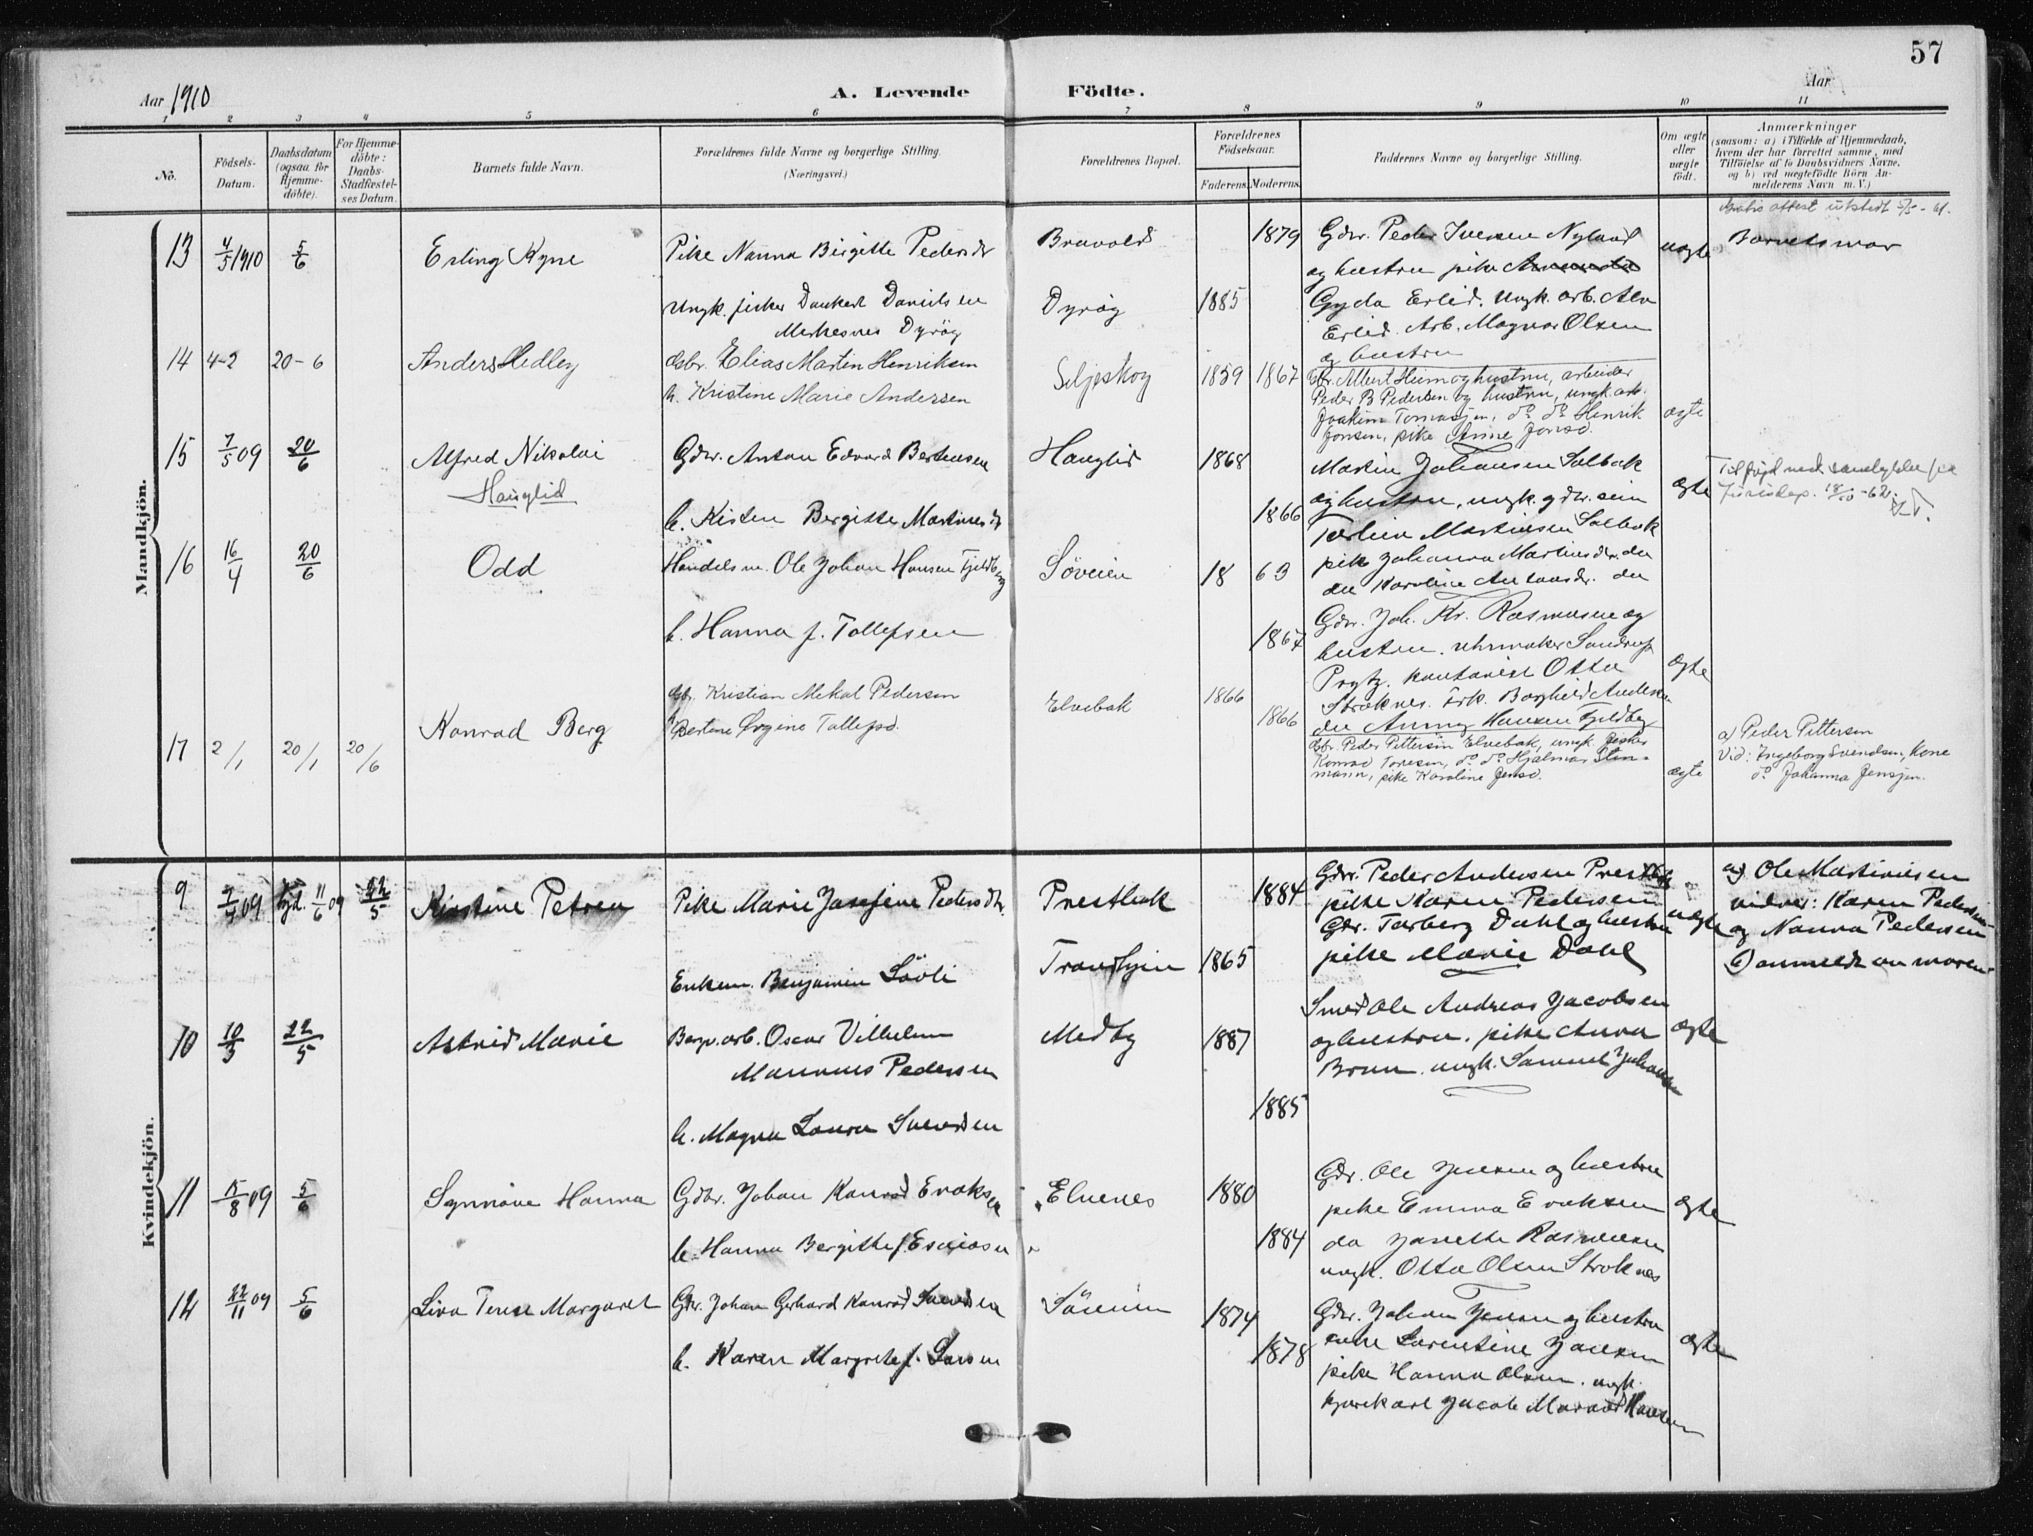 57
Aar 1910
A. Levende Födte.
Aar
1 2 3 4 5 6 7 8 9 10 11
No.
Födsels-Datum.
Daabsdatum (ogsaa for Hjemme-döbte).
For Hjemme-döbte: Daabs-Stadfæstel-ses Datum.
Barnets fulde Navn.
Forældrenes fulde Navne og borgerlige Stilling.
(Næringsvei.)
Forældrenes Bopæl.
Forældrenes Födselsaar.
Faderens. Moderens.
Faddernes Navne og borgerlige Stilling.
Om ægte eller uægte födt.
Anmærkninger
(saasom: a) i Tilfælde af Hjemmedaab, hvem der har forrettet samme, med Tilföielse af to Daabsvidners Navne, og b) ved uægtefödte Börn Anmelderens Navn m. V.)
Mandkjön.
13 4/5 1910 5/6 Erling Kyne
Pike Nanna Birgitte Pedersdr
Ungk. fisker Dankert Danielsen
Merkesnes Dyröy
Bravold
Dyröy
1885 1879
Gdr. Peder Iversen Nyland
og hustru pike
Gyda Erlid. Ungk. arb. Alv
Erlid. Arb. Magnar Olsen
og hustru
uægte
Gratis attest utstedt 5/5 - 61.
Barnets mor
14 4-2 20-6 Anders Hedley
Gbr. Elias Martin Henriksen
h. Kristine Marie Andersen
Seljeskog
1859 1867
Gbr. Albert Heim og hustru, arbeider
Peder B Pedersen og hustru, ungk. arb.
Joakim Tomasjen, do do Henrik
Jonsen, pike Anne Jonsd.
ægte
15 7/5 09 20/6 Alfred Nikolai
Hauglid
Gdr. Anton Edvard Berntsen
h. Kisten Bergitte Martinesdr
Hauglid
1868
1866
Martin Johansen Solbak
og hustru, ungk. gdr. søn
Martinsen Solbak
pike Johanna Martinsdr. do
do Karoline Antonsdr. do
ægte
18/10 -62.
16 16/4 20/6 Odd
Handelsm. Ole Johan Hansen Fjeldberg
h. Hanna f. Tollefsen
Söveien
18 63
1867
Gdr. Joh. Kr. Rasmussen og
hustru. uhrmaker Sandrup
Prytz. kontorist Otto
Stroknes. Frk. Borghild Anders
do Anny Hansen Fjeldberg
ægte
17 2/1 20/1 20/6 Konrad Berg
Gbr. Kristian Mekal Pedersen
h. Bertine Orgine Tollefsd.
Elvebak
1866
1866
Gbr. Peder Pettersen Elvebak, ungk. fisker
Konrad Toresen, do do Hjalmar Sten-
mann, pike Karoline Jensd.
ægte
a) Peder Pettersen
Vid: Ingeborg Svendsen, Kone
do Johanna Jensjen.
Kvindekjön.
9 09 11/6 09 22/5 Kirstine Petrea
Pike Marie Josefine Pedersdtr.
Enkem. Benjamin Lövli
Prestbak
Tranöyen
1865 1884
Gdr. Peder Andersen Prestbak
pike Karen Pedersen
Gdr. Torberg Dahl og hustru
pike Marie Dahl
uægte
a) Ole Martinisen
vidner: Karen Pedersen
og Nanna Pedersen
anmeldt av moren
10 10/3 22/5 Astrid Marie
Bergv. arb. Oscar Vilhelm
Marinius Pedersen
h. Magna Laura Svendsen
Medby
1887
1885
Smed Ole Andreas Jacobsen
og hustru. pike Anna
Brun. ungk. Samuel Johansen
ægte
11 15/8 09 5/6 Synnöve Hanna
Gdbr. Johan Konrad Enoksen
h. Hanna Bergitte f. Esaiasen
Elvenes
1880
1884
Gdr. Ole Jensen og hustru
pike Emma Enoksen
do Janette Rasmussen
ungk. Otto Olsen Stroknes
ægte
12 22/11 09 5/6 Liva Terese Margaret
Gdr. Johan Gerhard Konrad Svendsen
h. Karen Margrete f. Larsen
Söveien
1874
1878
Gdr. Johan Jensen og hustru
enke Lorentine Jensen
pike Hanna Olsen. ungk.
Jacob Hansen
ægte